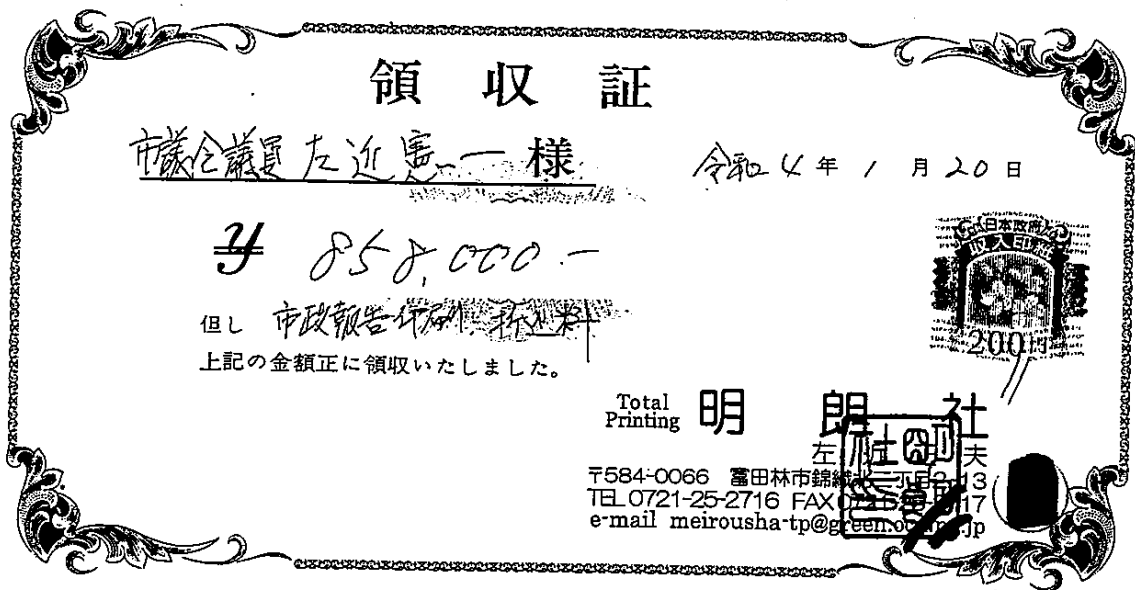 領収証
市議会議員 左近憲一 様
令和4年1月20日
¥ 858,000.-
但し 市政報告印刷、折込料
上記の金額正に領収いたしました。
日本政府
収入印紙
200円
Total Printing 明朗社
左 夫
〒584-0066 富田林市錦織北二丁目2-13
TEL 0721-25-2716 FAX 17
e-mail meirousha-tp@green.o .jp